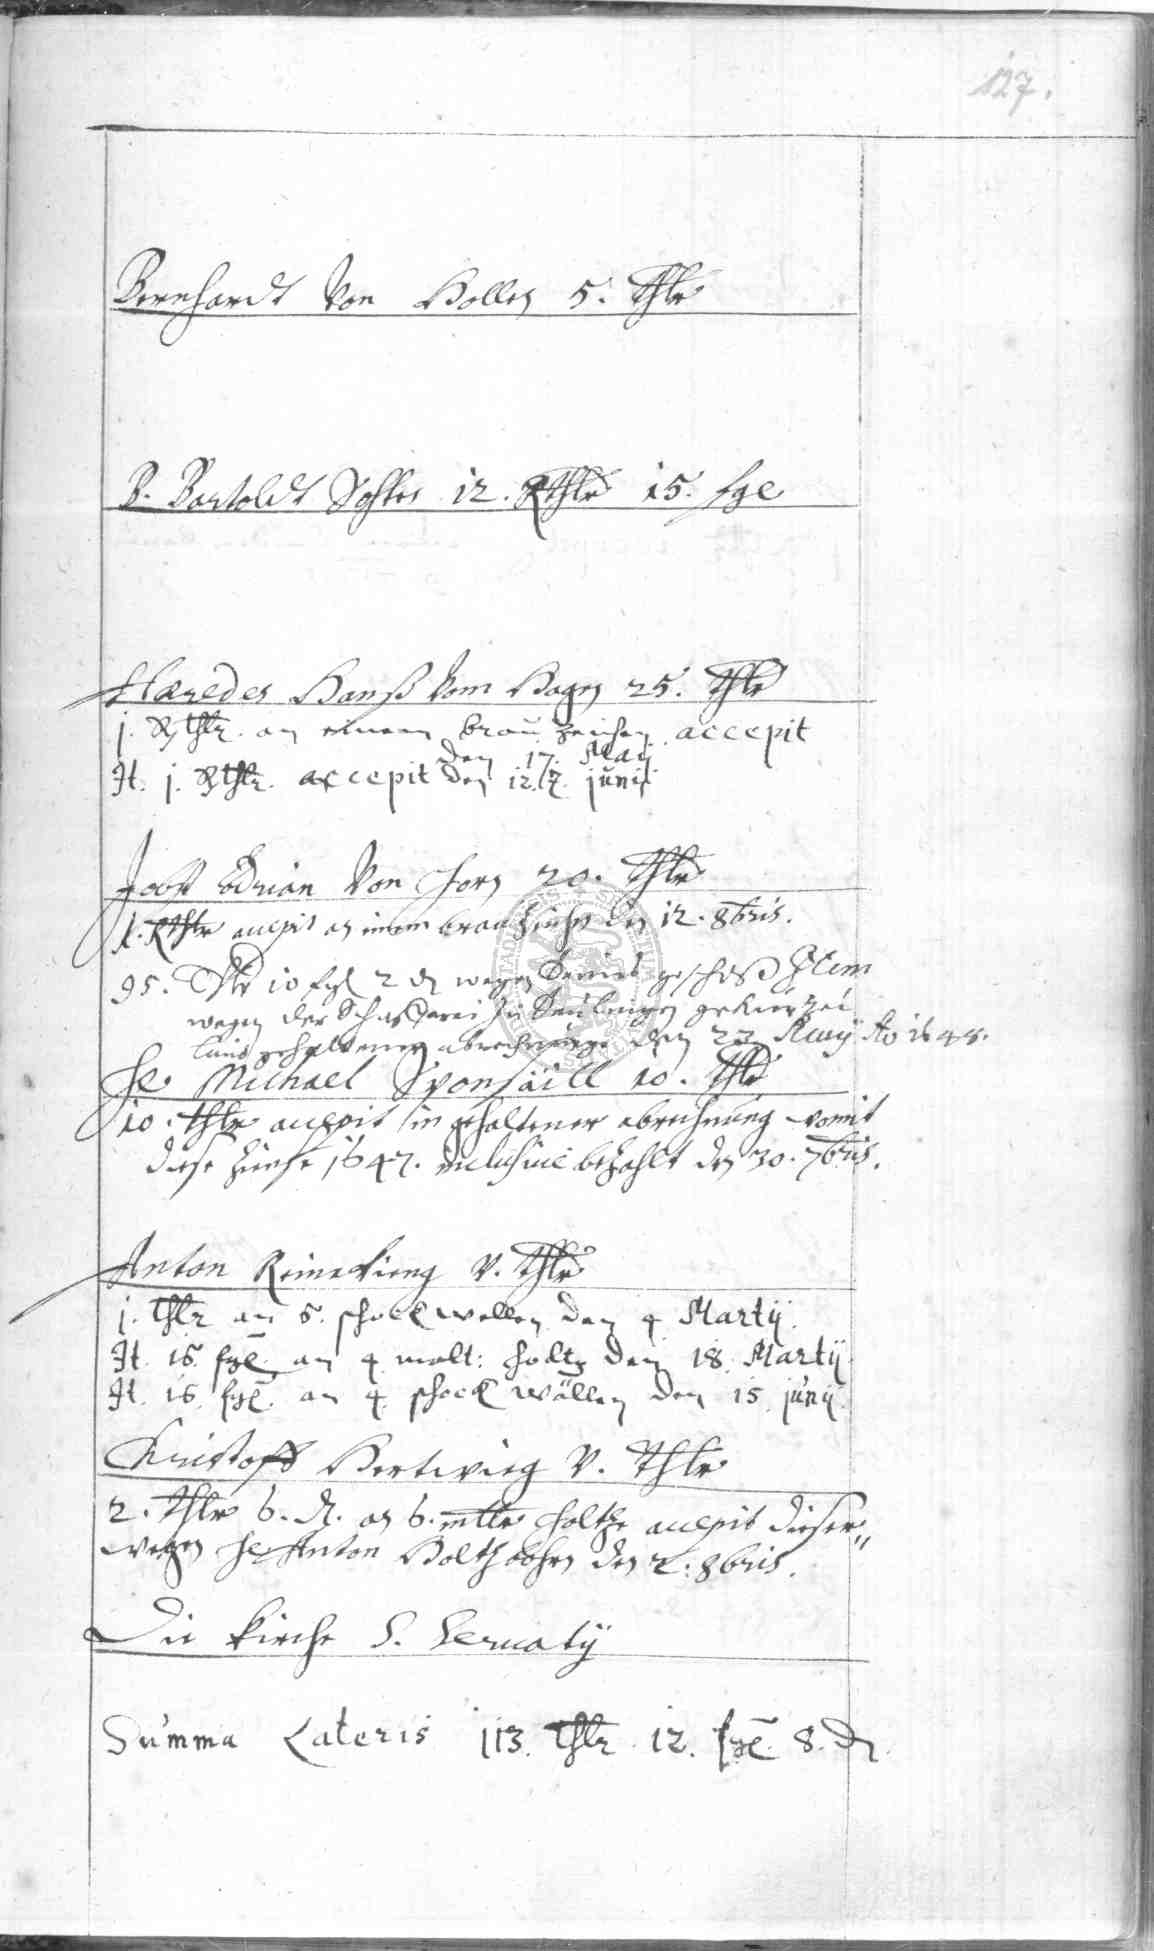 127.
Bernhardt Von Bollen 5. Thlr
B. Bartoldt 12. Rthlr 15. sgl
Hæredes Hanß Vom Hagen 25. Thlr
j. Rthlr. an einem brau zeichen accepit
den 17. Maij
It. j. Rthlr. accepit den 12. junij
Jobst Adrian Von Horn 20. Thlr
1. Rthlr accepit an einem brau Zeichen den 12. 8bris.
95. Thlr 10 sgl 2 d wegen geschoß Item
wegen der Schäfferei zu gekürzet
laut gehaltener abrechnunge den 23 Maij Ao 1648.
He. Michael 10. Thlr
10. thlr accepit in gehaltener abrechnung womit
diese Zinse 1647. inclusive bezahlt den 30. 7bris.
Anton Reineking V. Thlr
j. thlr an 5. schock wellen den 4 Martij.
It. 15. sgl. an 4 malt: holtz den 18. Martij
It. 16. sgl. an 4. schock wällen den 15 junij.
Christoff Hertwieg V. Thlr
2. thlr 6. d. an 6. mltr holtze accepit dieser"
wegen He Anton den 2. 8bris.
Die Kirche S. Servatij
Summa Lateris 113. thlr. 12. sgl. 8. d.